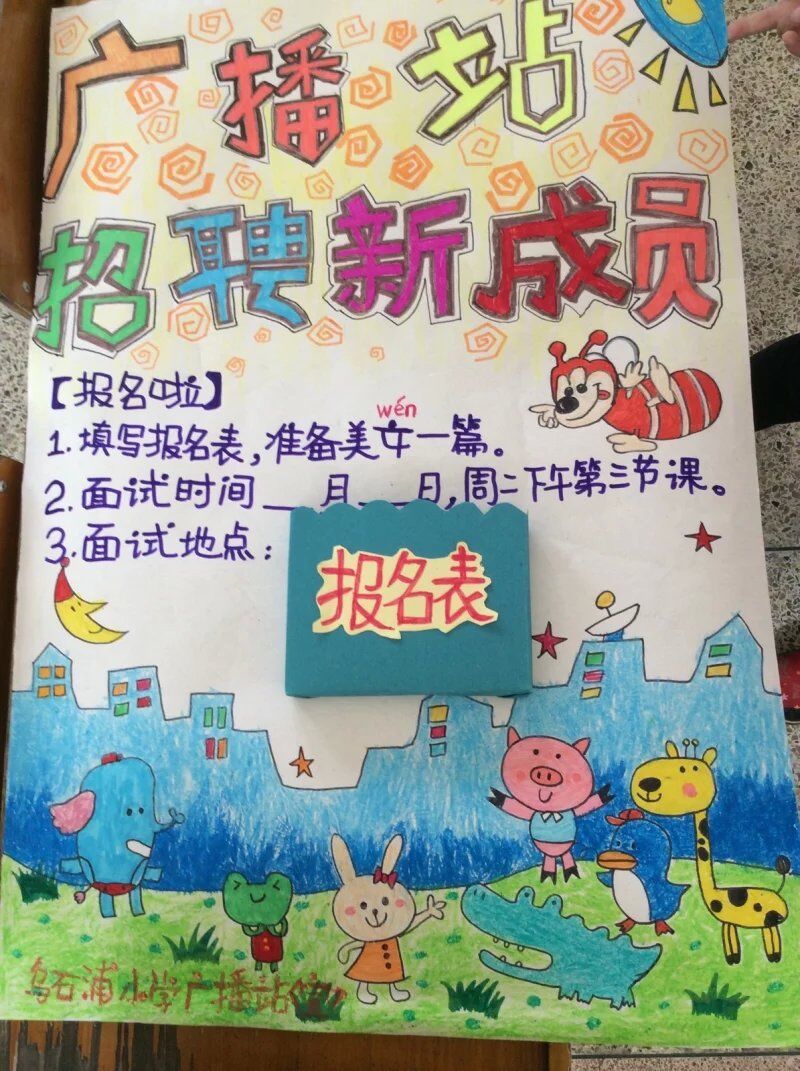 广播站
招聘新成员
【报名啦】
wén
1.填写报名表,准备美女一篇。
2.面试时间___月___日,周二下午第三节课。
3.面试地点:
报名表
乌石浦小学广播站